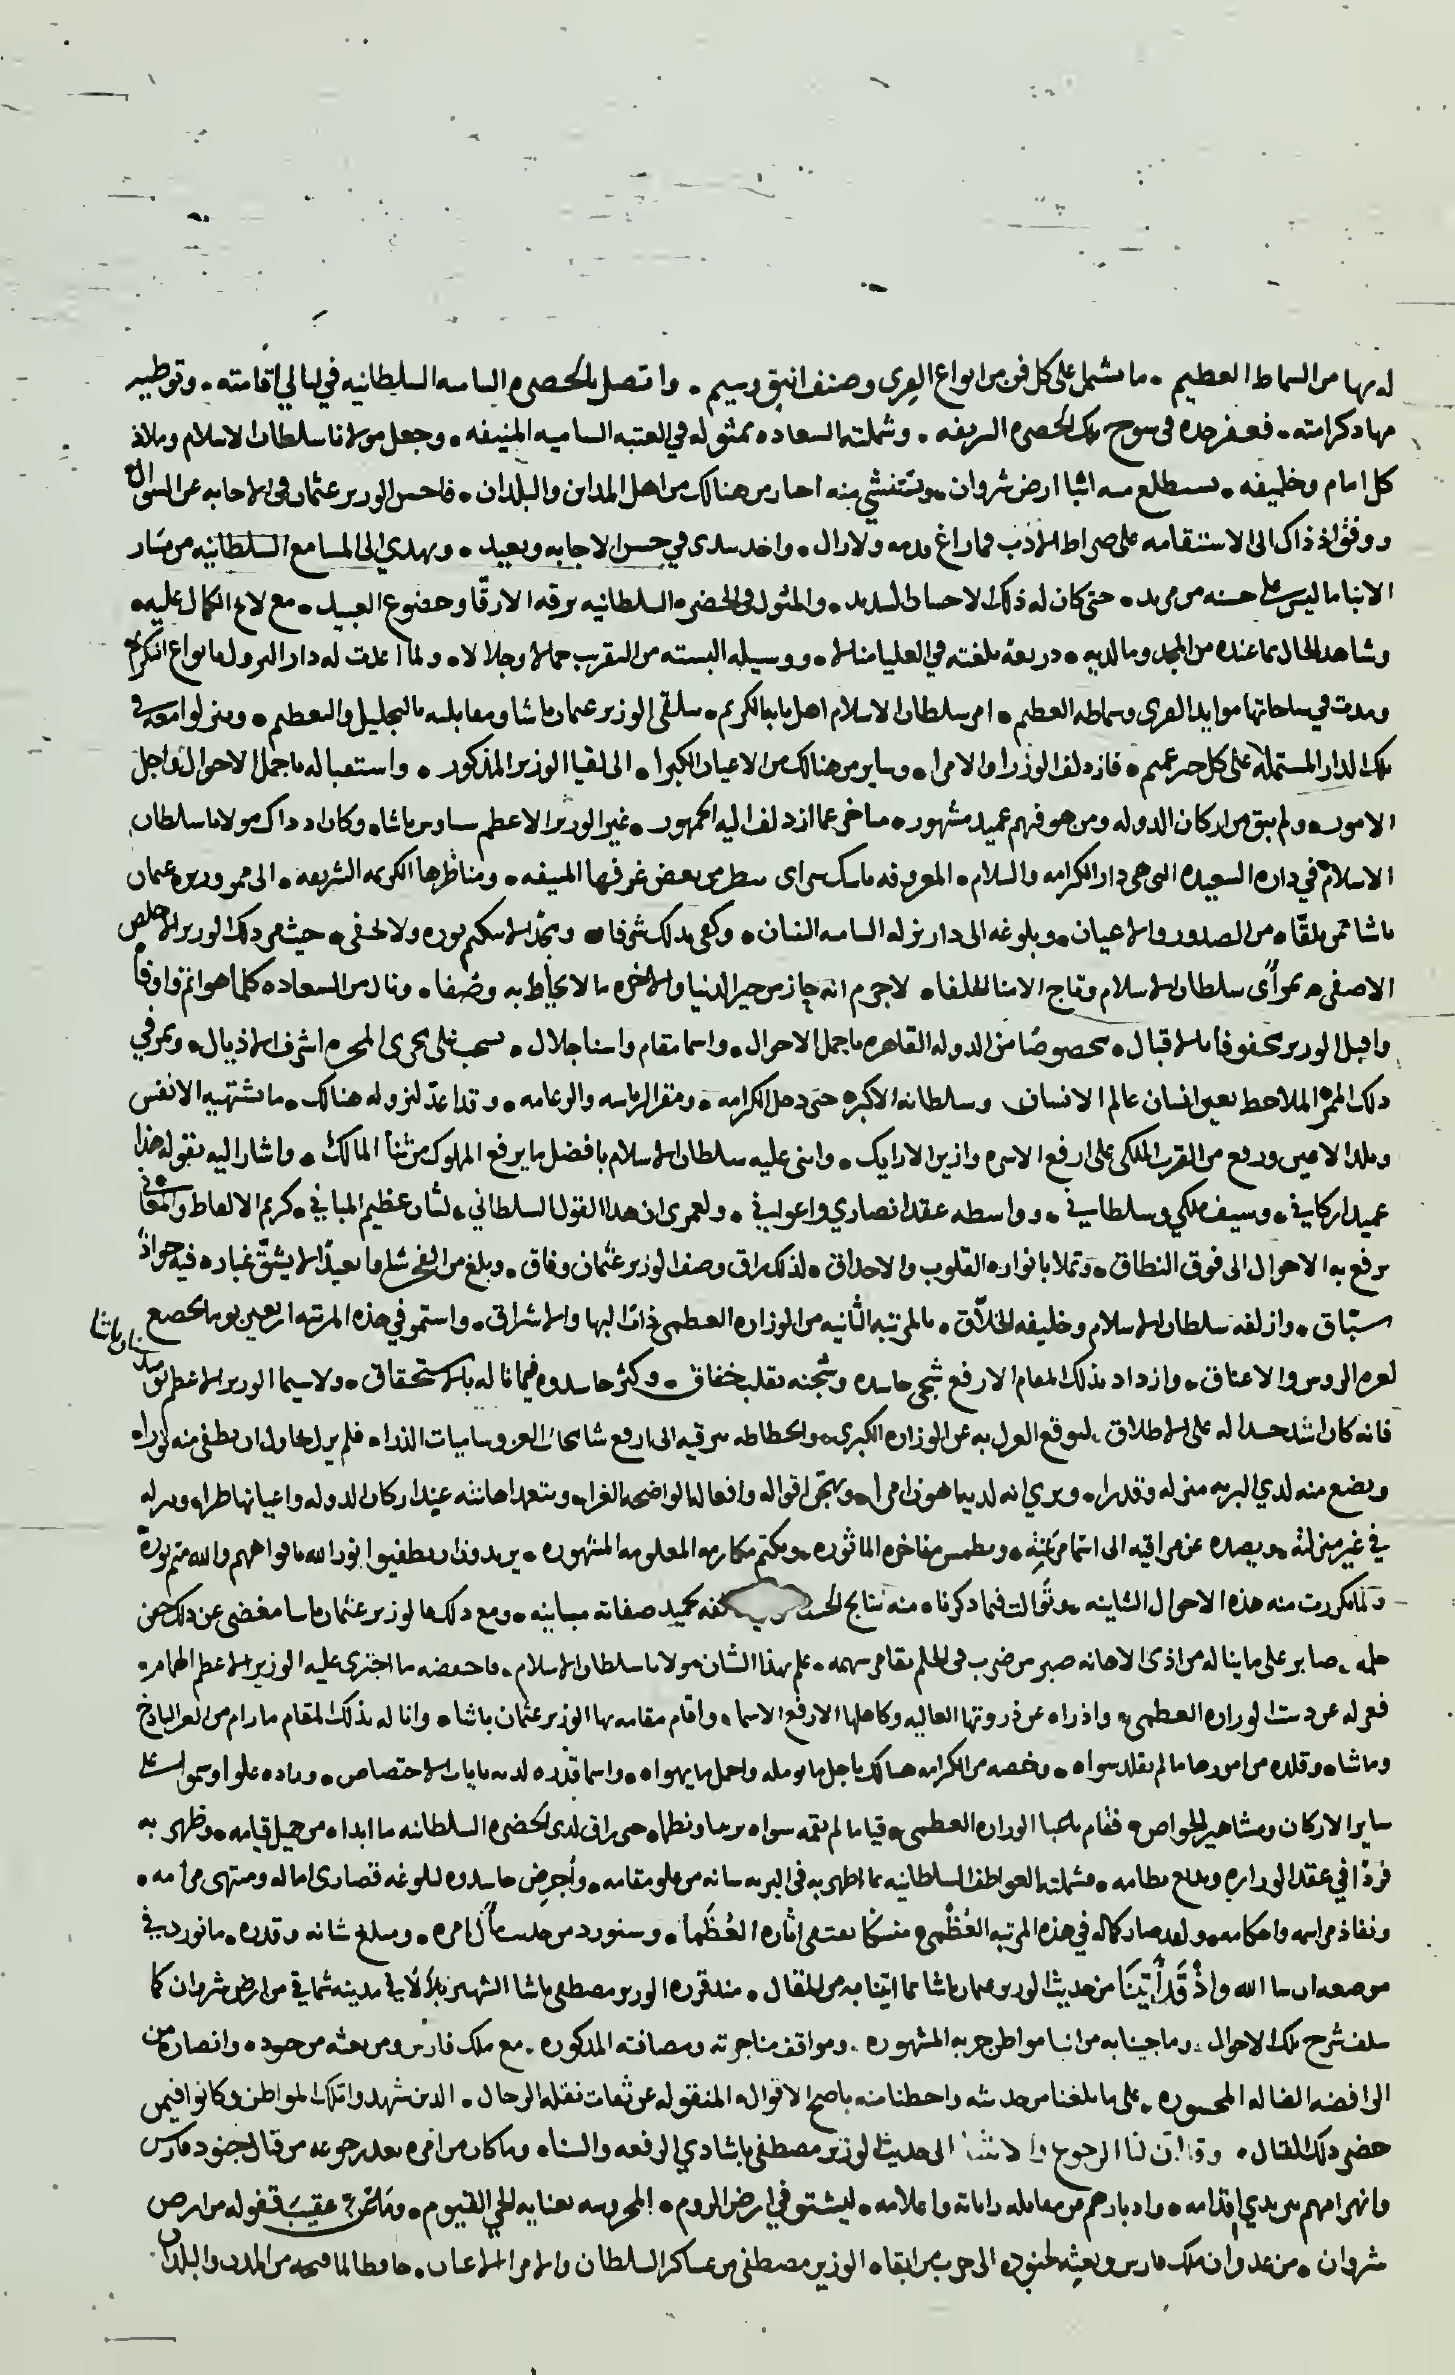 له بها من السماط العظيم • ما يشمل على كل فن من انواع القرى وصنف انيق وسيم • واتصل بالحضره الساميه السلطانيه في ليالي اقامته • وتوطيد
مهاد كرامته • فعفر خده في سوح تلك الحضره الشريفه • وشملته السعاده بمثوله في العتبه الساميه المنيفه • وجعل مولانا سلطان الاسلام وملاذ
كل امام وخليفه • يستطلع منه انبا ارض شروان • ويستنشي منه اخبار من هنالك من اهل المداين والبلدان • فاحسن الوزير عثمان في الاجابه عن السوال
ووفق اذ ذاك الى الاستقامه على صراط الادب فما زاغ قدمه ولا زال • واخذ يبدى في حسن الاجابه ويعيد • ويهدي الى المسامع السلطانيه من سار
الانبا ما ليس على حسنه من مزيد • حتى كان له ذلك الاحسان السديد • والمثول في الحضره السلطانيه برقه الارقا وخضوع العبيد • مع لايح الكمال عليه •
وشاهد الحال بما عنده من المجد وما لديه • ذريعة بلغته في العليا منالا • ووسيله البسته من التقرب جمالا وجلالا • ولما اعدت له دار النزول بانواع التكريم
ومدت في ساحاتها موايد القرى وسماطه العظيم • امر سلطان الاسلام اهل بابه الكريم • بتلقى الوزير عثمان باشا ومقابلته بالتبجيل والتعظيم • وينزلوا معه في
تلك الدار المشتمله على كل خير عميم • فازدلف الوزرا والامرا • وساير من هنالك من الاعيان الكبرا • الى لقيا الوزير المذكور • واستقباله باجمل الاحوال واجل
الامور • ولم يبق من اركان الدوله ومن هو فيهم عميد مشهور • متاخر عما ازدلف اليه الجمهور • غير الوزير الاعظم سياوس باشا • وكان اذ ذاك مولانا سلطان
الاسلام في داره السعيده التي هي دار الكرامه والسلام • المعروفه باسك سراى ينظر من بعض غرفها المنيفه • ومناظرها الكريمه الشريفه • الى مرور وزيره عثمان
باشا بمن تلقاه من الصدور والاعيان • وبلوغه الى دار نزله الساميه الشان • وكفى بذلك شرفا • ومجدا لا ينكتم نوره ولا يخفى • حيث مر ذلك الوزير الاخلص
الاصفى • بمرأى سلطان الاسلام وتاج الامنا الخلفا • لا جرم انه حاز من خير الدنيا والاخره ما لا يحاط به وصفا • ونال من السعاده كلما هو اتم واوفا
واقبل الوزير محفوفا بالاقبال • مخصوصا من الدوله القاهره باجمل الاحوال • واسما مقام واسنا جلال • يسحب على مجرى المجره اشرف الاذيال • ويمر في
ذلك الممر الملاحظ بعين انسان عالم الانسان وسلطانه الاكبر • حتى دخل الكرامه • ومقر الرياسه والزعامه • وقد اعد لنزوله هنالك • ما تشتهيه الانفس
وتلذ الاعين ورفع من القرب الملكي على ارفع الاسره وازين الارايك • واثنى عليه سلطان الاسلام بافضل ما يرفع الملوك من ثنا المالك • واشار اليه بقوله هذا
عميد اركاني • وسيف ملكي وسلطاني • وواسطه عقد انصاري واعواني • ولعمرى ان هذا القول السلطاني • لشان عظيم المباني • كريم الالفاظ والمعاني
يرفع به الاحوال الى فوق النطاق • وتملا بانواره القلوب والاحداق • لذلك راق وصف الوزير عثمان وفاق • وبلغ من الفخر شاوا بعيدا لا يشق غباره فيه جواد
سباق • وازلفه سلطان الاسلام وخليفه الخلاق • بالمرتبه الثانيه من الوزاره العظمى ذات البها والاشراق • واستمر في هذه المرتبه اربعين يوما تخضع
لعزه الروس والاعناق • وازداد بذلك المقام الارفع شجى حاسده وشحنه بقلب خفاق • وكثر حاسدوه فيما ناله بالاستحقاق • ولا سيما الوزير الاعظم سياوس باشا
فانه كان اشد حسدا له على الاطلاق • لتوقع العزل به عن الوزاره الكبرى • وانحطاطه برقيه الى ارفع شامخات العز وساميات الذرا • فلم يزل يحاول ان يطفى منه نورا •
ويضع منه لدي البريه منزله وقدرا • ويري انه لديها هون امرا • ويهجن اقواله وافعاله الواضحه الغرا • ويتعمد اهانته عند اركان الدوله واعيانها طرا • وينزله
في غير منزلته • ويصده عن مراقيه الى اسما مرتبته • ويطمس مفاخره الماثوره • ويكتم مكارمه المعلومه المشهوره • يريدون ان يطفيوا نور الله بافواههم والله متم نوره
ولما تكررت منه هذه الاحوال الشاينه • وتوالت فيما ذكرناه منه نتايج الحسد لحميد صفاته مباينه • ومع ذلك فالوزير عثمان باشا مغضى عن ذلك حسن
حلمه • صابر على ما يناله من اذى الاهانه صبر من ضرب في الحلم بقامر سهمه • علم بهذا الشان مولانا سلطان الاسلام • فاحفظه ما اجترى عليه الوزير الاعظم الهمام •
فعزله عن دست الوزاره العظمى • واذراه عن ذروتها العاليه وكاهلها الارفع الاسما • واقام مقامه بها الوزير عثمان باشا • وانا له بذلك المقام ما رام من العز الباذخ
وما شا • وقلده من امورها ما لم يقلد سواه • وخصه من الكرامه هنالك باجل ما يومله واجمل ما يهواه • واسما قدره لديه بايات الاختصاص • وزاده علوا وسموا على
ساير الاركان ومشاهير الخواص • فقام باعبا الوزاره العظمى • قياما لم يقمه سواه برما ونظما • حتى راق لدى الحضره السلطانيه ما ابداه من جميل قيامه • وظهر به
فردا في عقد الوزاره وبديع نظامه • فشملته العواطف السلطانيه بما اظهر به في البريه شانه من علو مقامه • وأجرض حاسدوه لبلوغه قصارى اماله ومنتهى مرامه •
ونفاذ مراسمه واحكامه • ولقد صار كماله في هذه المرتبه العظمى منسكا يقتفى اثاره العظما • وسنورد من حديث مآل امره • ومبلغ شانه وقدره • ما نورد في
موضعه ان شا الله واذ قد أتينا من حديث الوزير عثمان باشا بما اتينا به من المقال • منذ قرره الوزير مصطفى باشا الشهير بلالا في مدينه شماقي من ارض شروان كما
سلف شرح تلك الاحوال • وما جينا به من انبا مواطن حربه المشهوره • ومواقف مناجزته ومصافته المذكوره • مع ملك فارس ومن بعثه من جنوده • وانصاره من
الرافضه الضاله المخسوره • على ما بلغنا من حديثه واحطنا منه باصح الاقوال المنقوله عن ثقات نقله الرجال • الذين شهدوا تلك المواطن وكانوا فيمن
حضر ذلك القتال • وقد ان لنا الرجوع الى حديث الوزير مصطفى باشا ذي الرفعه والسنا • وما كان من امره بعد رجوعه من قتال جنود فارس
وانهزامهم بين يدي اقدامه • وادبارهم من مقابله راياته واعلامه • ليشتو في ارض الروم • المحروسه بعنايه الحي القيوم • وما عن عقيب قفوله من ارض
شروان • من عدوان ملك فارس وبعثه لجنوده الى حرب من ابقاه الوزير مصطفى من عساكر السلطان والامرا الاعيان • حافظا لما فتحه من المدن والبلدان